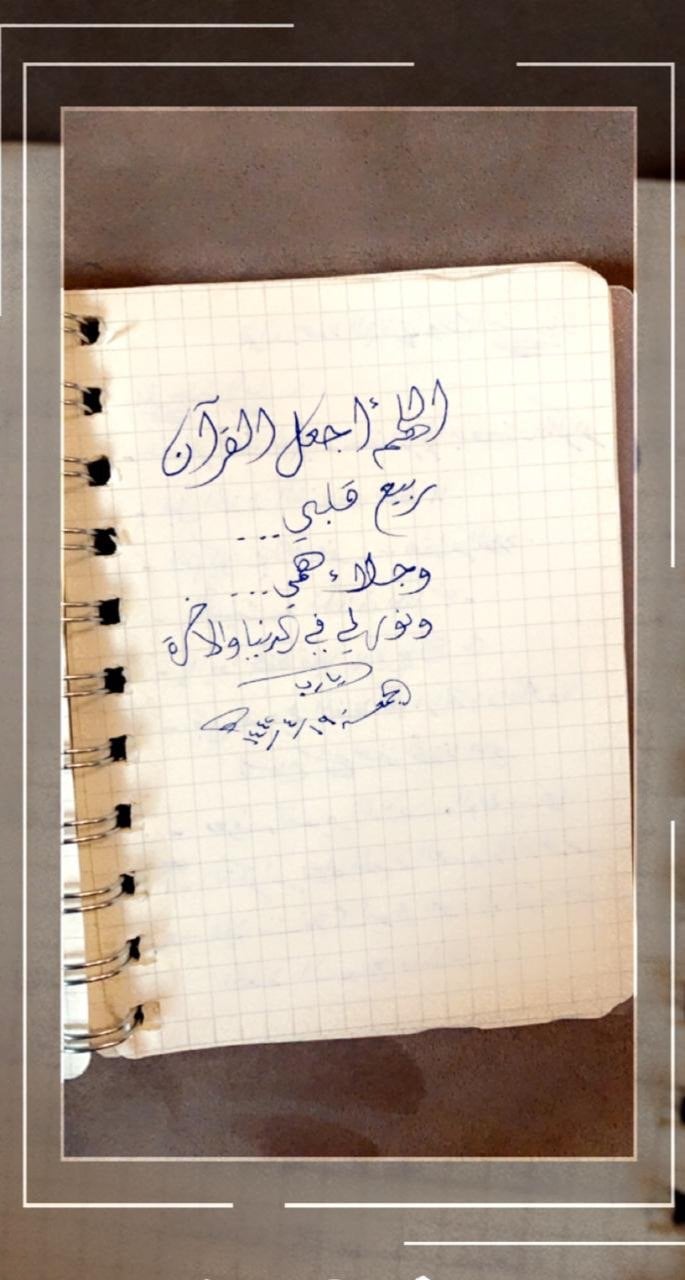 اللهم أجعل القرآن
ربيع قلبي...
وجلاء همي...
ونور لي في الدنيا والآخرة
يارب
الجمعة